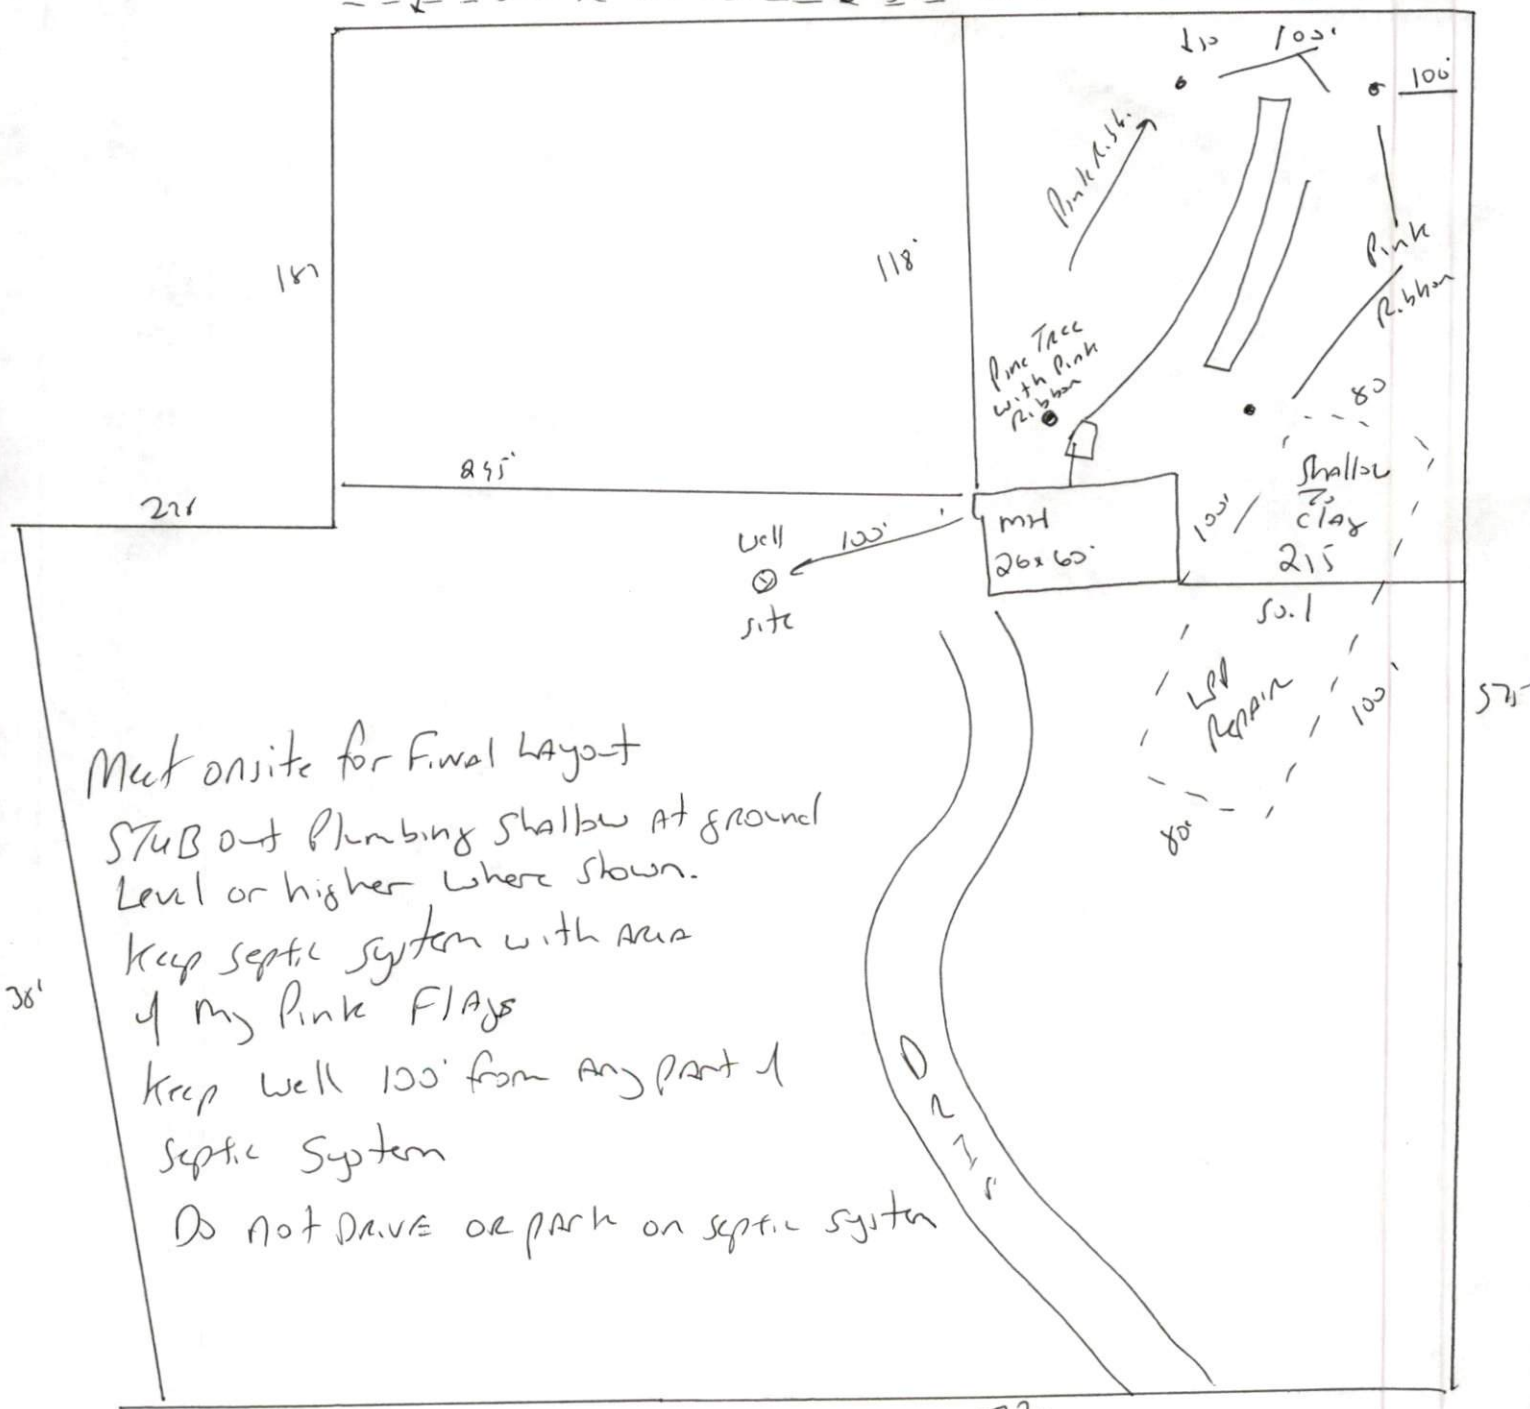 100'
100'
Pink
Pink
Ribbon
187
118'
Pine Tree
with Pink
Ribbon
80
245'
Shallow
To
Clay
215
100'
MH
26x60'
100'
well
site
LPP
Repair
100'
80'
Meet onsite for Final Layout
STUB out Plumbing Shallow At ground
Level or higher where shown.
Keep septic system with AREA
of my Pink Flags
Keep well 100' from Any part of
septic System
Do not DRIVE OR park on septic system